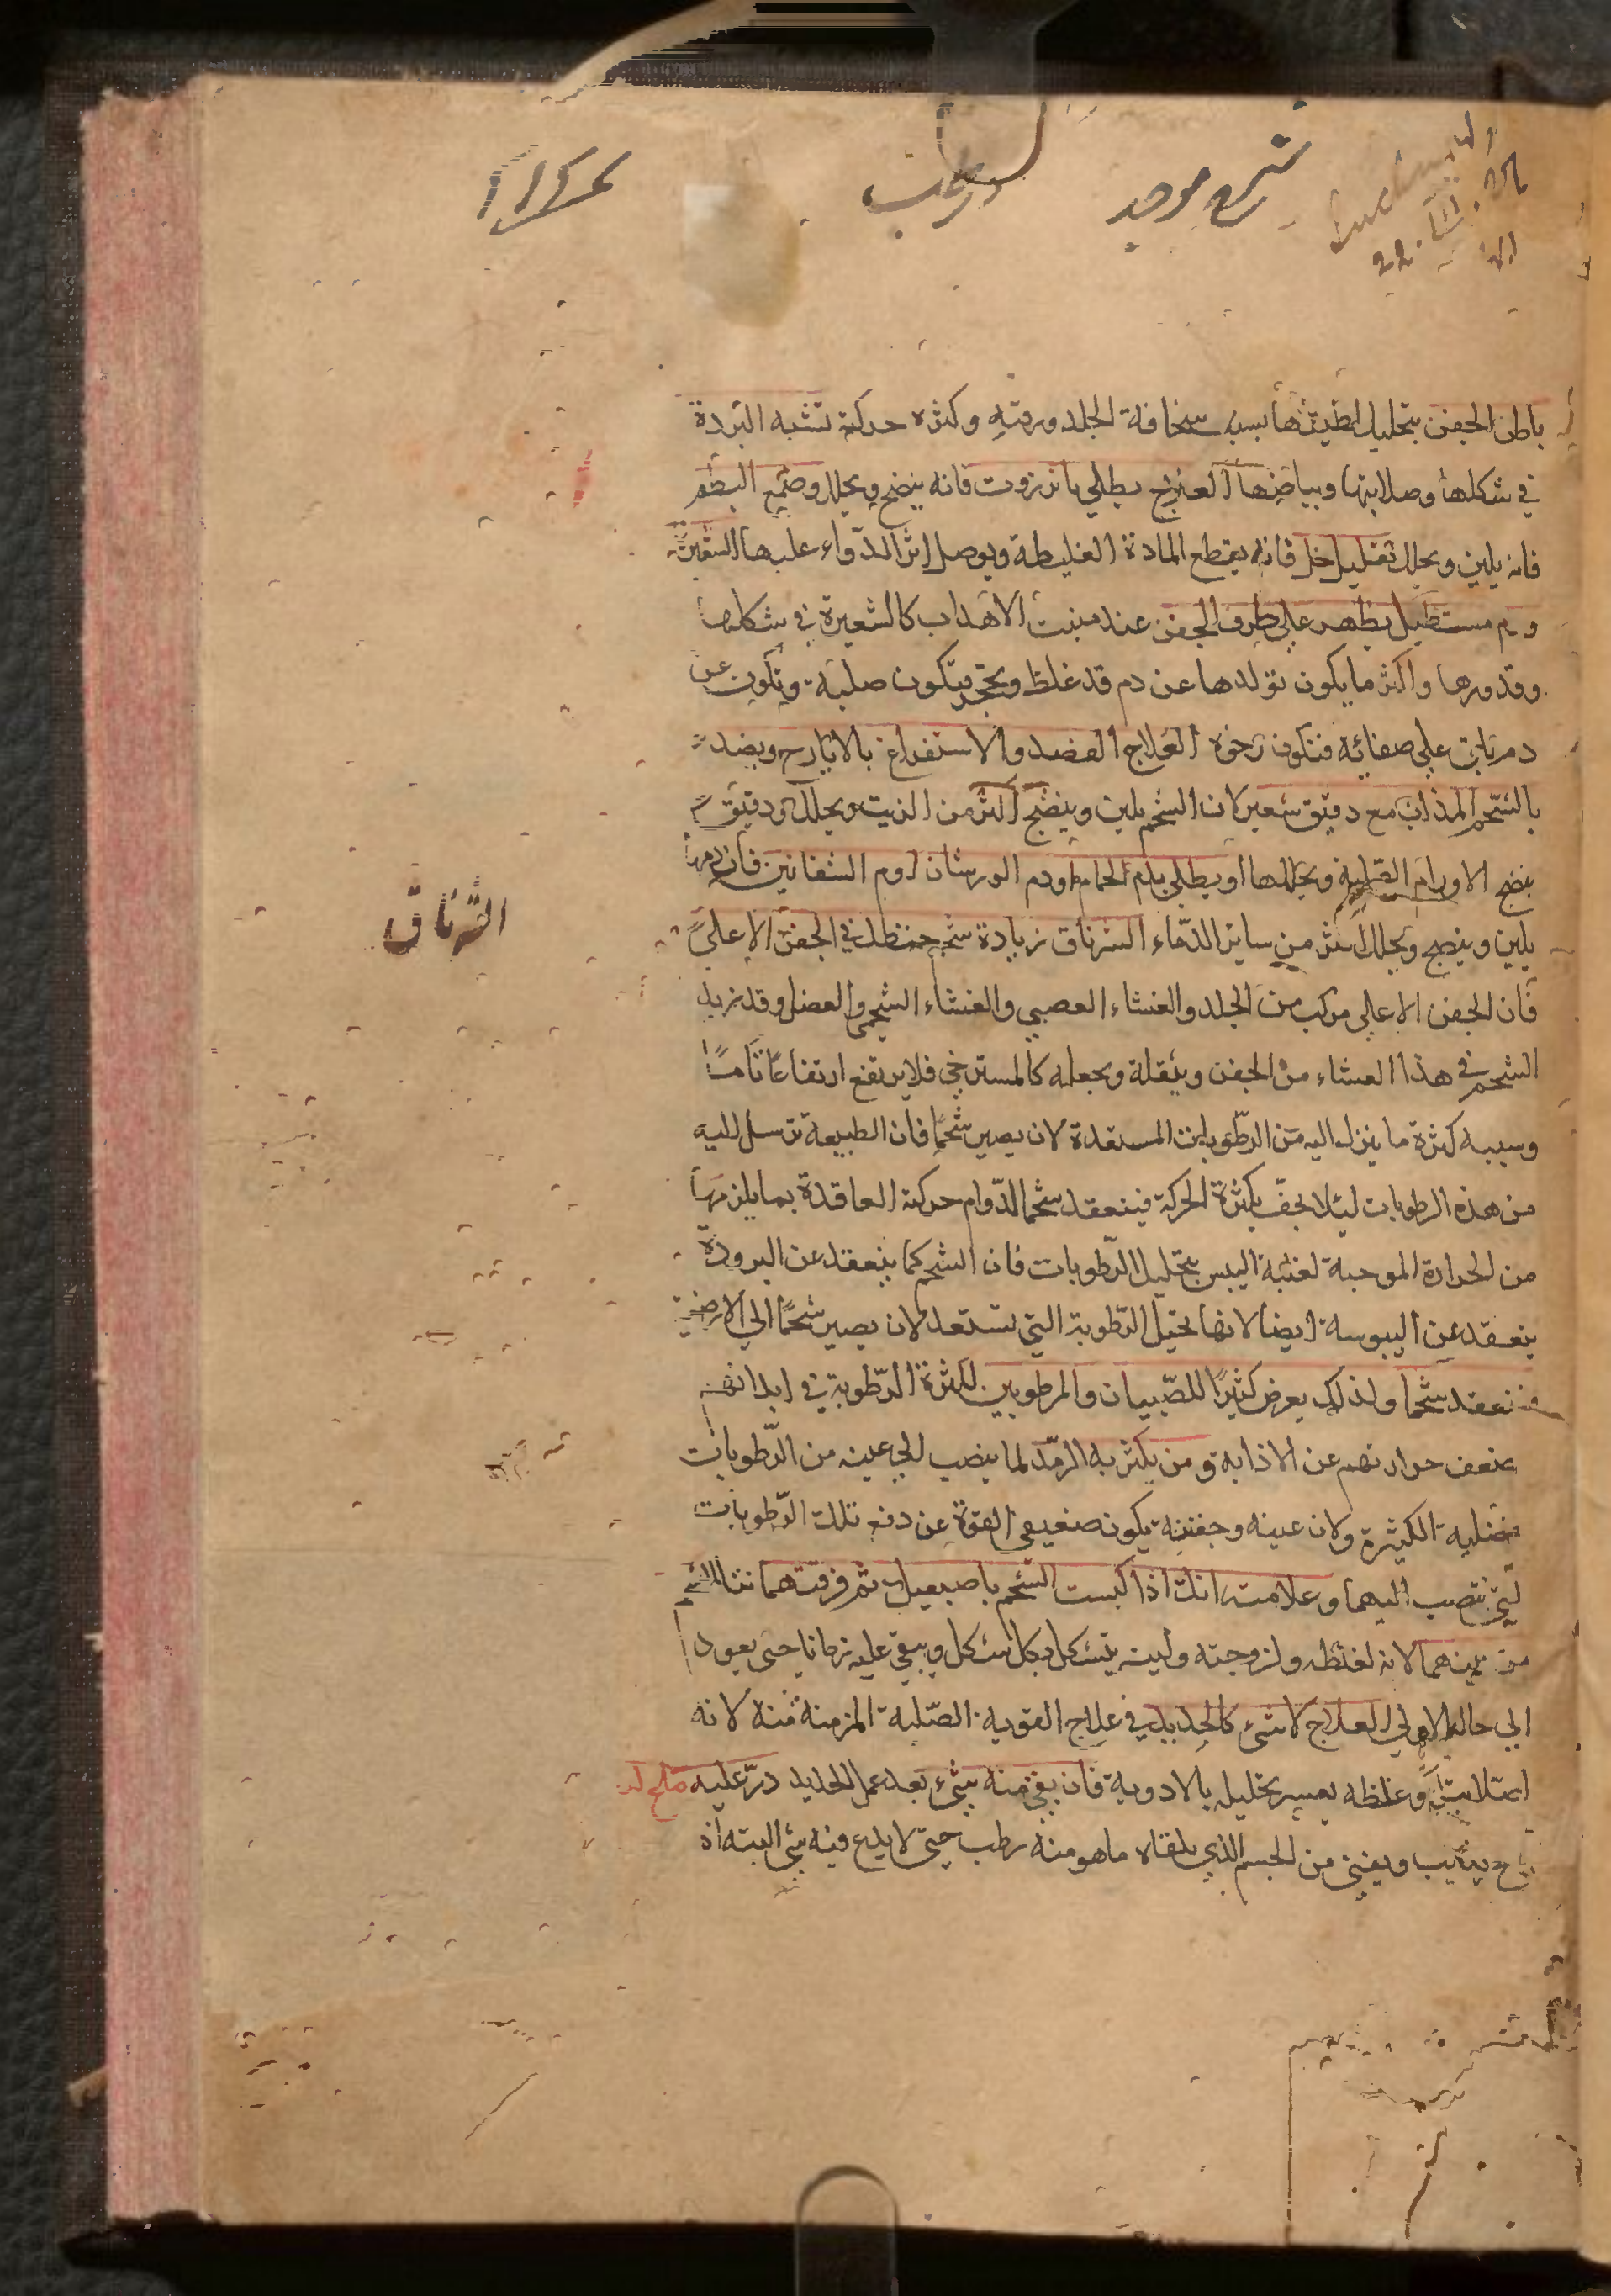 شرح موجز
باطن الجفن بتحليل لطيفها بسبب سخافة الجلد ورقته وكثرة حركة تشبه البردة
في شكلها وصلابتها وبياضها العلاج يطلي بانزروت فانه ينضج ويحلل وصمغ البطم
فانه يلين ويحلل بقليل خل فانه يقطع المادة الغليظة ويوصل اثر الدواء عليها الشعيرة
ورم مستطيل يظهر على طرف الجفن عند منبت الاهداب كالشعيرة في شكلها
وقدورها واكثر ما يكون تولدها عن دم قد غلظ وتحجر فتكون صلبة وتكون عن
دم باق على صفائه فتكون رخوة العلاج الفصد والاستفراغ بالايارج ويضمد
بالشحم المذاب مع دقيق شعير لان الشحم يلين وينضج اكثر من الزيت ويحلل ودقيق
ينضج الاورام القلبية ويحللها او يطلي بدم الحمام او دم الورشان او دم الشفانين فان
يلين وينضج ويحلل اكثر من ساير الدماء الشرناق زيادة شحم في الجفن الاعلى
الشرناق
فان الجفن الاعلي مركب من الجلد والغشاء العصبي والغشاء الشحمي والعضل وقد يزيد
الشحم في هذا الغشاء من الجفن ويثقله ويجعله كالمسترخي فلا يرتفع ارتفاعا تاما
وسببه كثرة ما ينزل اليه من الرطوبات المستعدة لان يصير شحما فان الطبيعة ترسل اليه
من هذه الرطوبات لئلا يجف بكثرة الحركة فينعقد شحما لدوام حركته العاقدة بما يلزمها
من الحرارة الموجبة لغلبة اليبس بتحليل الرطوبات فان الشحم كما ينعقد عن البرودة
ينعقد عن اليبوسة ايضا لانها تحيل الرطوبة التي تستعد لان يصير شحما الي الارضية
فتنعقد شحما ولذلك يعرض كثيرا للصبيان والمرطوبين لكثرة الرطوبة في ابدانهم
ضعف حرارتهم عن الاذابة ومن يكثر به الرمد لما ينصب الي عينه من الرطوبات
فضليه الكثيرة ولان عينه وجفنه يكون ضعيفي القوة عن دفع تلك الرطوبات
لتي تنصب اليهما وعلامته انك اذا كبست الشحم باصبعيك ثم فرقتهما
من بينهما لانه لغلظه ولزوجته ولينه يتشكل بكل شكل ويبقى عليه زمانا حتى يعود
الي حاله الاولي العلاج لا شيء كالحديد في علاج القوية الصلبة المزمنة منه لانه
لصلابته وغلظه يعسر تحليله بالادوية فان بقي منه شيء بعد عمل الحديد ذر عليه ملح
يذيب ويفني من الجسم الذي يلقاه ما هو منه رطب حتى لا يدع فيه شي البتة اذ